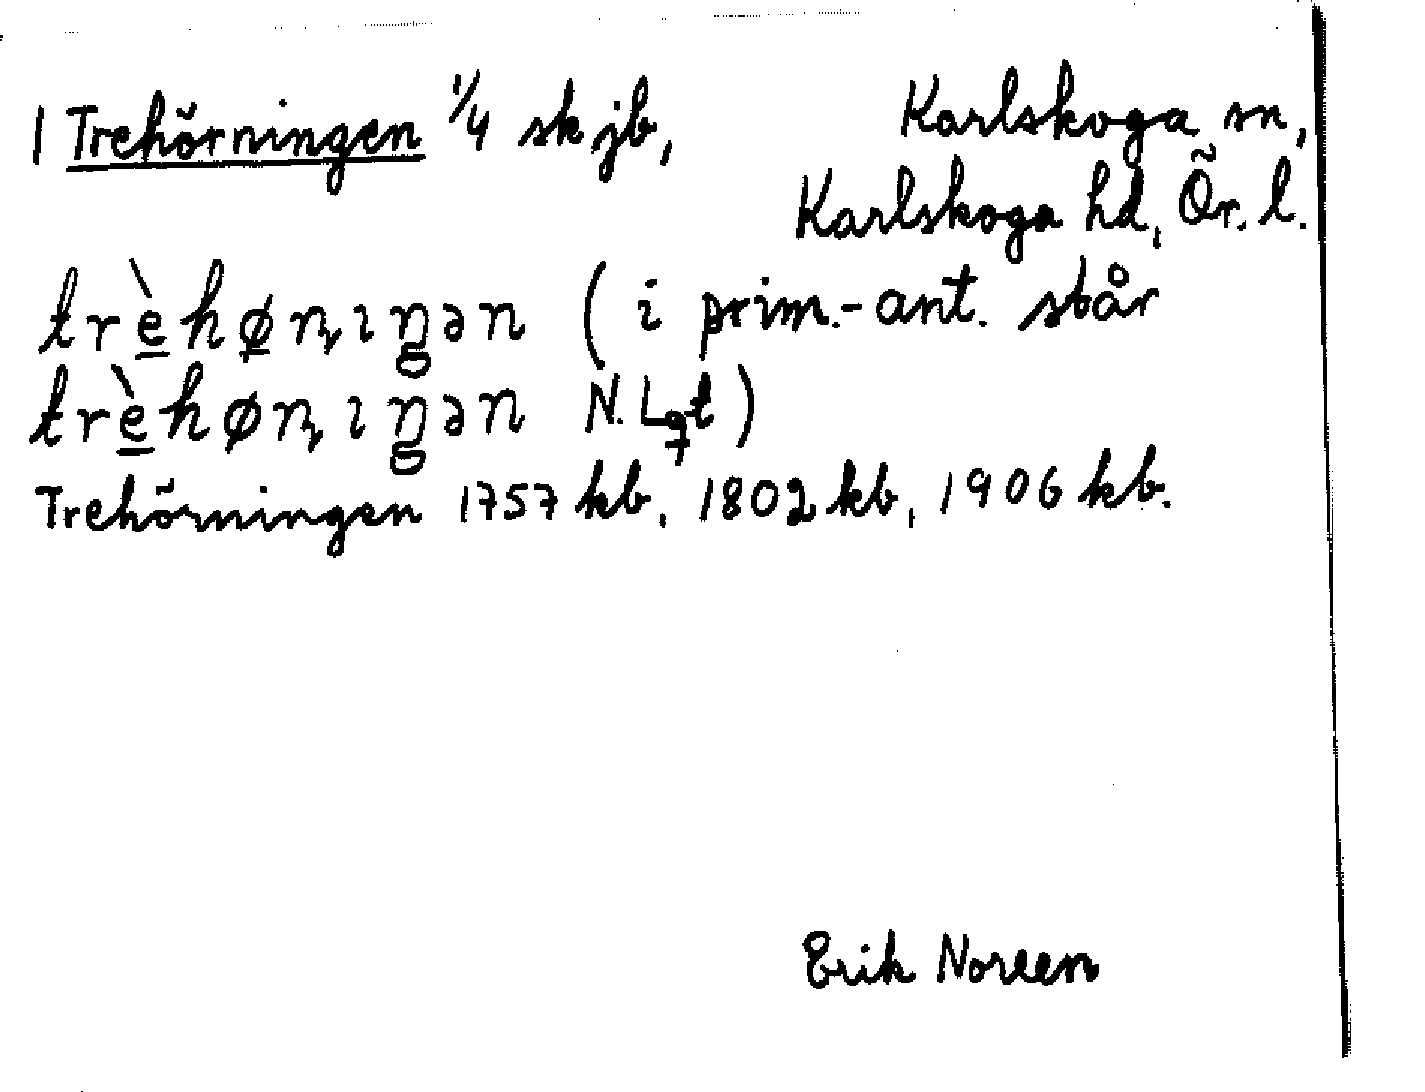 1 Trehörningen 1/4 sk jb, Karlskoga sn,
Karlskoga hd, Ör. l.
trè̱hø̱ɳıŋən (i prim.-ant. står
trè̱høɳıŋən N. Lgt)
Trehörningen 1757 kb, 1802 kb, 1906 kb.
Erik Noreen